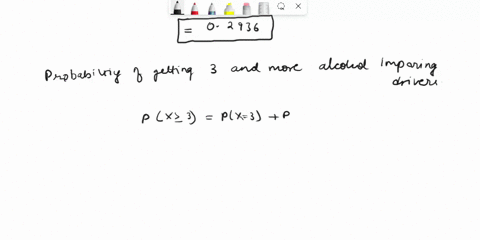 = 0.2936
Probability of getting 3 and more alcohol Imparing
drivers
P(X≥3) = P(X=3) + P